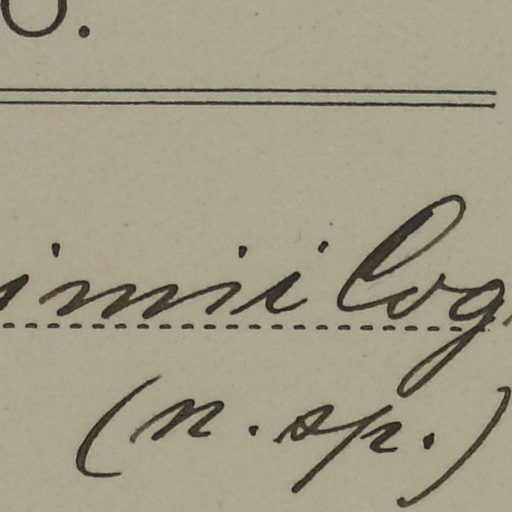 O.
imii log
(n. sp.)